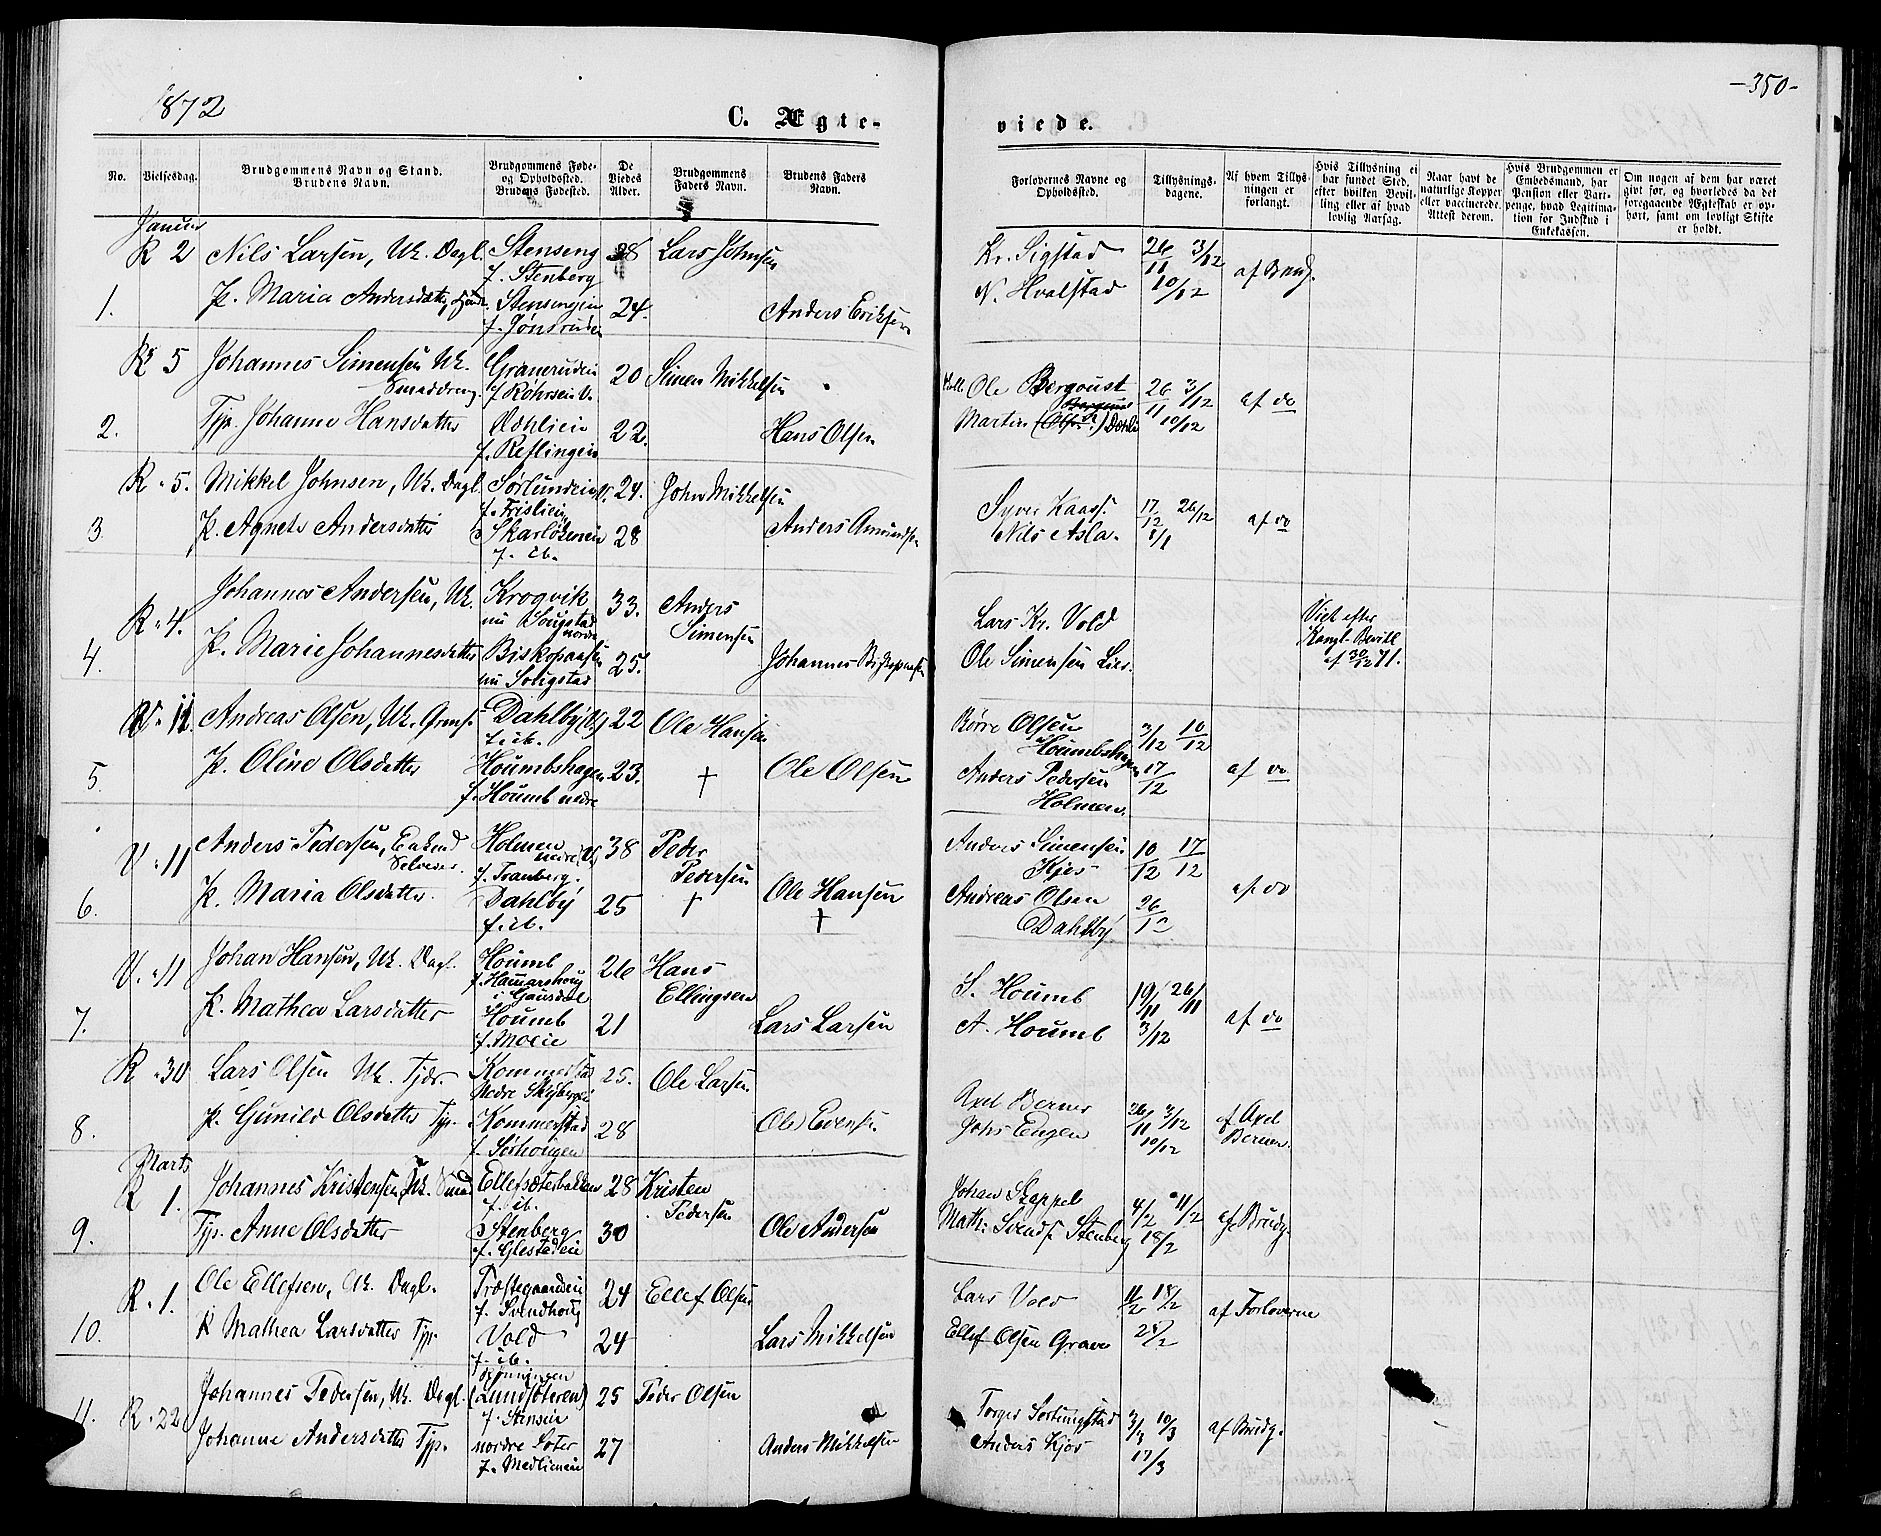 1872
C. Ægte-
No.
Vielsesdag.
Brudgommens Navn og Stand.
Brudens Navn.
Brudgommens Føde-
og Opholdssted.
Brudens Fødested.
De
Viedes
Alder.
Brudgommens
Faders Navn.
Brudens Faders
Navn.
Januar
R 2 Nils Larsen, Uk. Dagl. Stenseng 28 Lars Johnsen
f. Stenberg
1. P. Maria Andersdatter, Stensengen 24. Anders Eriksen
f. Jønsruden
R 5 Johannes Simensen Uk. Graneruden 20 Simen Mikkelsen
Smeddreng. f. Röhrseie V.
2. Tjp. Johanne Hansdatter Ødhlien 22. Hans Olsen
f. Reflingen
R. 5. Mikkel Johnsen, Uk. Dagl. Sørlundeie V. 24. John Mikkelsen
f. Frislien
3 P. Agnete Andersdatter 28 Anders Amundsen
f. ib.
Johannes Andersen, Uk. Krogvik 33. Anders
R. 4. nu Sougstad Simensen
nordre
4. P. Marie Johannesdatter Biskopaasen 25. Johannes Biskopaasen
nu Sougstad
V. 11. Andreas Olsen, Uk. Dahlby (V) 22 Ole Hansen
f. ib.
5 P. Oline Olsdatter Houmbshagen 23. † Ole Olsen
f. Houmb nedre
V. 11 Anders Pedersen, Enkmd Holmen 38 Peder
Selveier. nedre (V) Pedersen
f. Tranberg.
6. P. Maria Olsdatter Dahlby 25 † Ole Hansen
f. ib. †
V. 11 Johan Hansen, Uk. Dagl. Houmb 26 Hans
f. Hammarshoug Ellingsen
i Gausdal
7. P. Mathea Larsdatter Houmb 21 Lars Larsen
f. Moeie
R. 30 Lars Olsen Uk. Tjdr. Kommerstad 25. Ole Larsen
Nedre Skyberg
8. P. Gunild Olsdatter Tjp. Kommerstad 28 Ole Evens.
Marts
R 1. Johannes Kristensen Uk. Smed Ellefsæterbakken 28 Kristen
f. ib. Pedersen
9. Tjp. Anne Olsdatter Stenberg 30 Ole Andersen
f. Glestadeie
R. 1. Ole Ellefsen, Uk. Dagl. Præstegaardeie 24 Ellef Olsen
f. Svendhoug
10. P Mathea Larsdatter Tjp. Vold 24 Lars Mikkelsen
f. ib.
11. R. 22 Johannes Pedersen, Uk. Dagl. (Lundsæteren) 25 Peder Olsen
f. Stenseie
Johanne Andersdatter Tjp. nordre Sæter 27 Anders Mikkelsen
f. Medlimeie
-350-
viede.
Forlovernes Navne og
Opholdssted.
Tillysnings-
dagene.
Af hvem Tillys-
ningen er
forlangt.
Hvis Tillysning ei
har fundet Sted,
efter hvilken Bevil-
ling eller af hvad
lovlig Aarsag.
Naar havt de
naturlige Kopper
eller vaccinerede.
Attest derom.
Hvis Brudgommen er
Embedsmand, har
Pension eller Vart-
penge, hvad Legitima-
tion for Indskud i
Enkekassen.
Om nogen af dem har været
gift før, og hvorledes da det
foregaaende Ægteskab er op-
hørt, samt om lovligt Skifte
er holdt.
Kr. Sigstad 26/11 3/12 af Brudg.
N. Hvalstad 10/12
Ole Bergqust 26/11 3/12 af do
Martin 10/12
Syver Kaass. 17/12 26/12 af do
Nils Asla. 1/1
Lars Kr. Vold Viet efter
Kongl. Bevill.
Ole Simensen Lies. af 30/12 71.
Børre Olsen 3/12 10/12
Houmbshagen
Anders Pedersen 17/12 af do
Holmen.
Anders Simensen 10/12 17/12
Kjos af do
Andreas Olsen 26/12
Dahlby
S. Houmb 19/11 26/11 af do
A. Houmb 3/12
Axel Berner 26/11 3/12 af Axel
Johs Engen 10/12 Berner.
Johan Skappel 4/2 11/2 af Brudg.
Math: Svends. Stenberg 18/2
Lars Vold 11/2 18/2 af Forloverne
Ellef Olsen Grave 25/2
Torger Sortungstad 3/3 10/3 af Brudg.
Anders Kjos 17/3